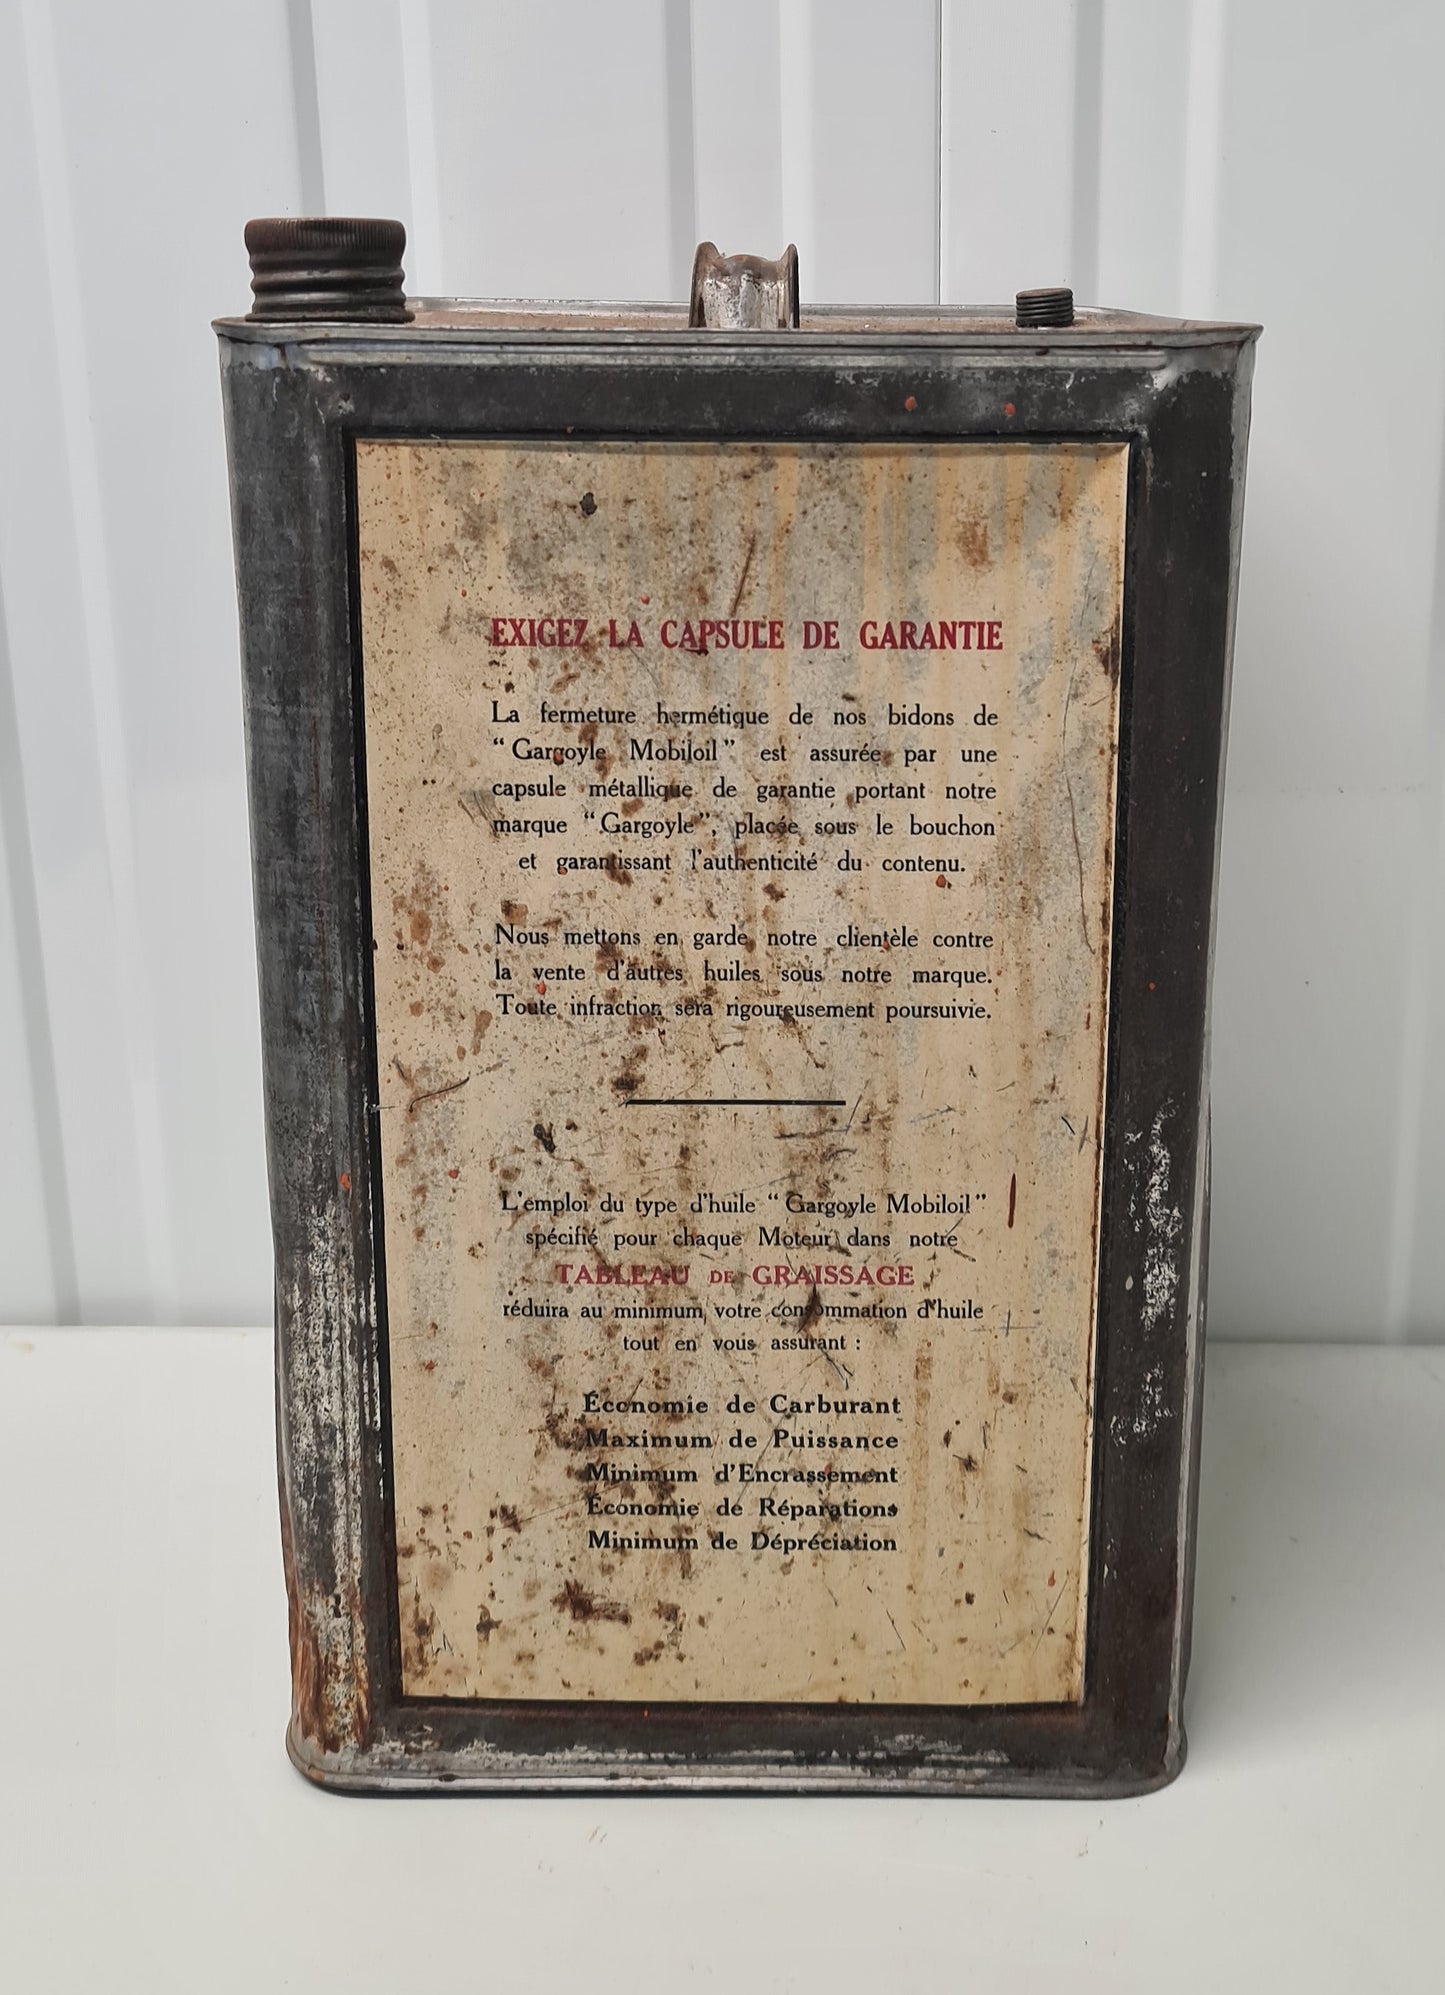 EXIGEZ LA CAPSULE DE GARANTIE
La fermeture hermétique de nos bidons de
“Gargoyle Mobiloil” est assurée par une
capsule métallique de garantie portant notre
marque “Gargoyle”, placée sous le bouchon
et garantissant l'authenticité du contenu.
Nous mettons en garde notre clientèle contre
la vente d'autres huiles sous notre marque.
Toute infraction sera rigoureusement poursuivie.
L'emploi du type d'huile “Gargoyle Mobiloil”
spécifié pour chaque Moteur dans notre
TABLEAU DE GRAISSAGE
réduira au minimum votre consommation d'huile
tout en vous assurant :
Économie de Carburant
Maximum de Puissance
Minimum d'Encrassement
Économie de Réparations
Minimum de Dépréciation